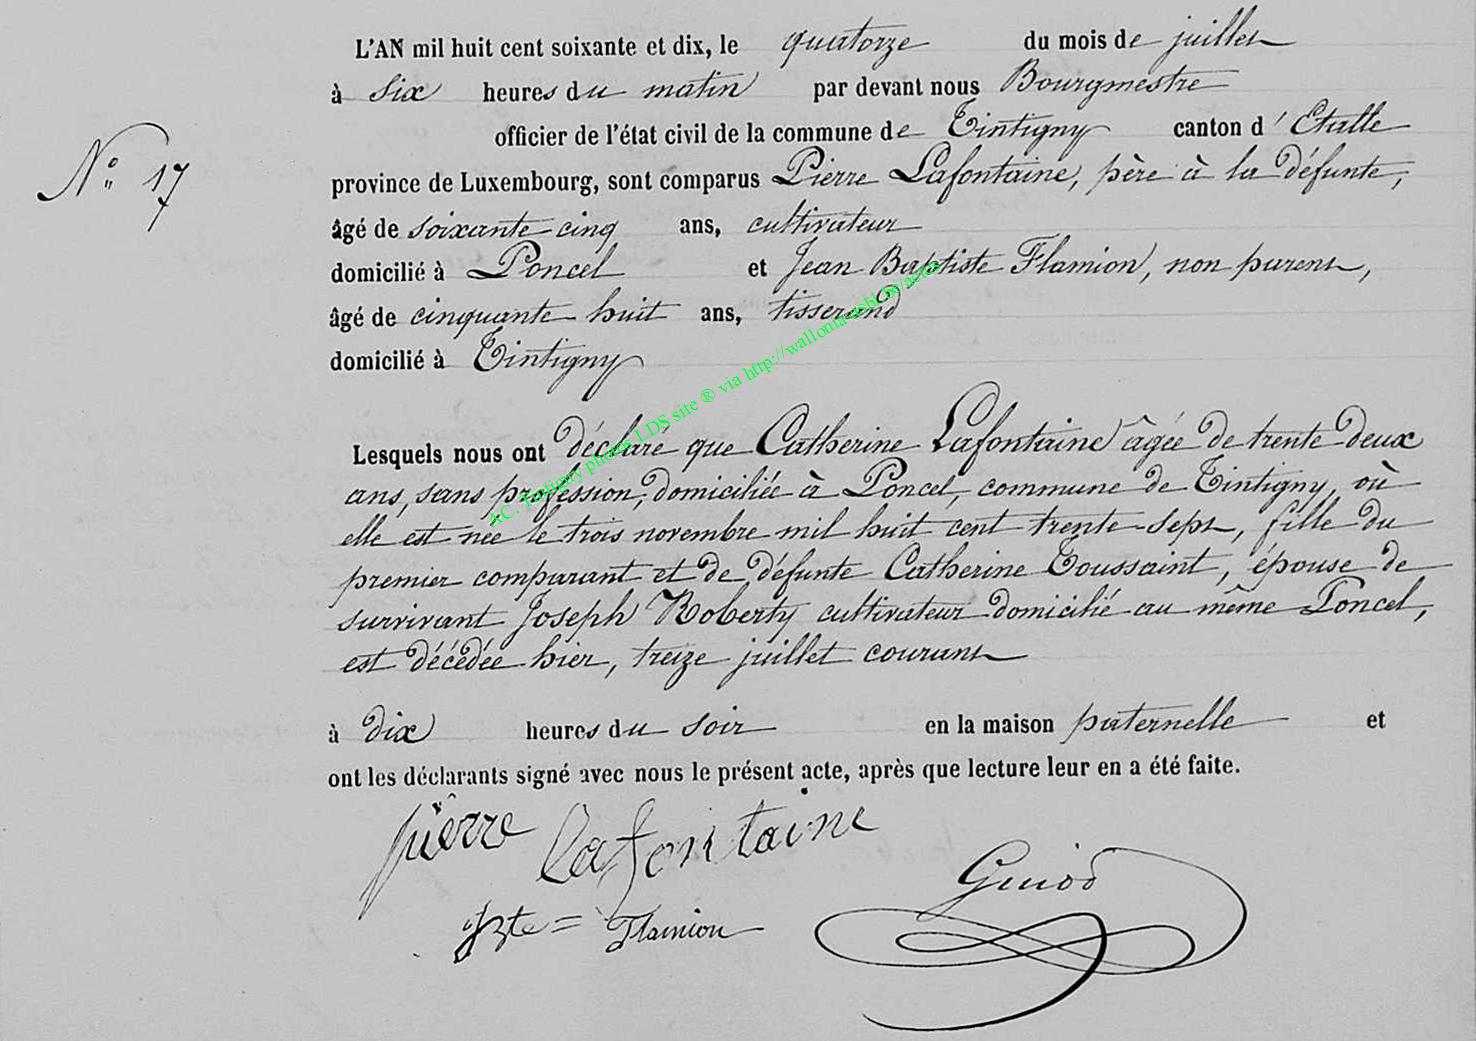 L'AN mil huit cent soixante et dix, le quatorze du mois de juillet
à six heures du matin par devant nous Bourgmestre
officier de l'état civil de la commune de Tintigny canton d'Etalle
N° 17
province de Luxembourg, sont comparus Pierre Lafontaine, père à la défunte,
âgé de soixante cinq ans, cultivateur
domicilié à Poncel et Jean Baptiste Flamion, non parent,
âgé de cinquante huit ans, tisserand
domicilié à Tintigny
AC. Tintigny photos LDS site ® via http://wallonia-asbl.be/actes
Lesquels nous ont déclaré que Catherine Lafontaine âgée de trente deux
ans, sans profession, domiciliée à Poncel, commune de Tintigny, où
elle est née le trois novembre mil huit cent trente-sept, fille du
premier comparant et de défunte Catherine Toussaint, épouse de
survivant Joseph Roberty cultivateur domicilié au même Poncel,
est décédée hier, treize juillet courant
à dix heures du soir en la maison paternelle et
ont les déclarants signé avec nous le présent acte, après que lecture leur en a été faite.
pierre lafontaine
JBte = Flamion